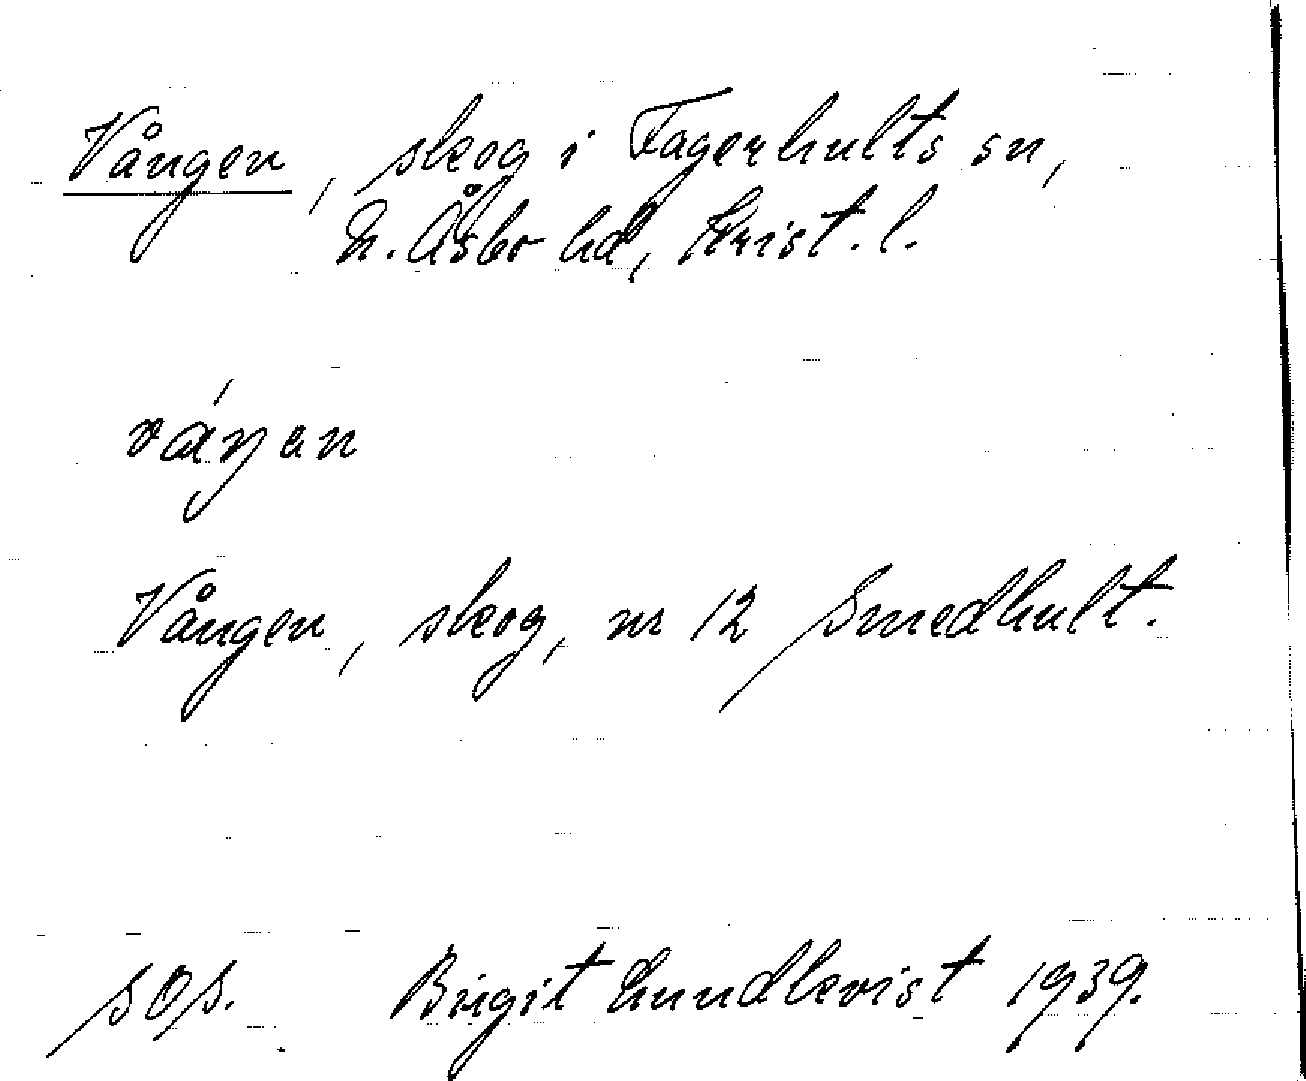 Vången, skog i Fagerhults sn,
N. Åsbo hd, Krist. l.
váŋan
Vången, skog, nr 12 Smedhult.
SOS. Birgit Lundkvist 1939.